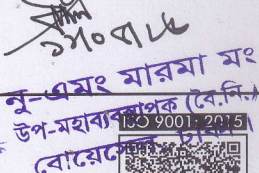 নু-এমং মারমা মং
উপ-মহাব্যবস্থাপক (বৈ.নি.)
ISO 9001:2015
বোয়েসেল, ঢাকা।